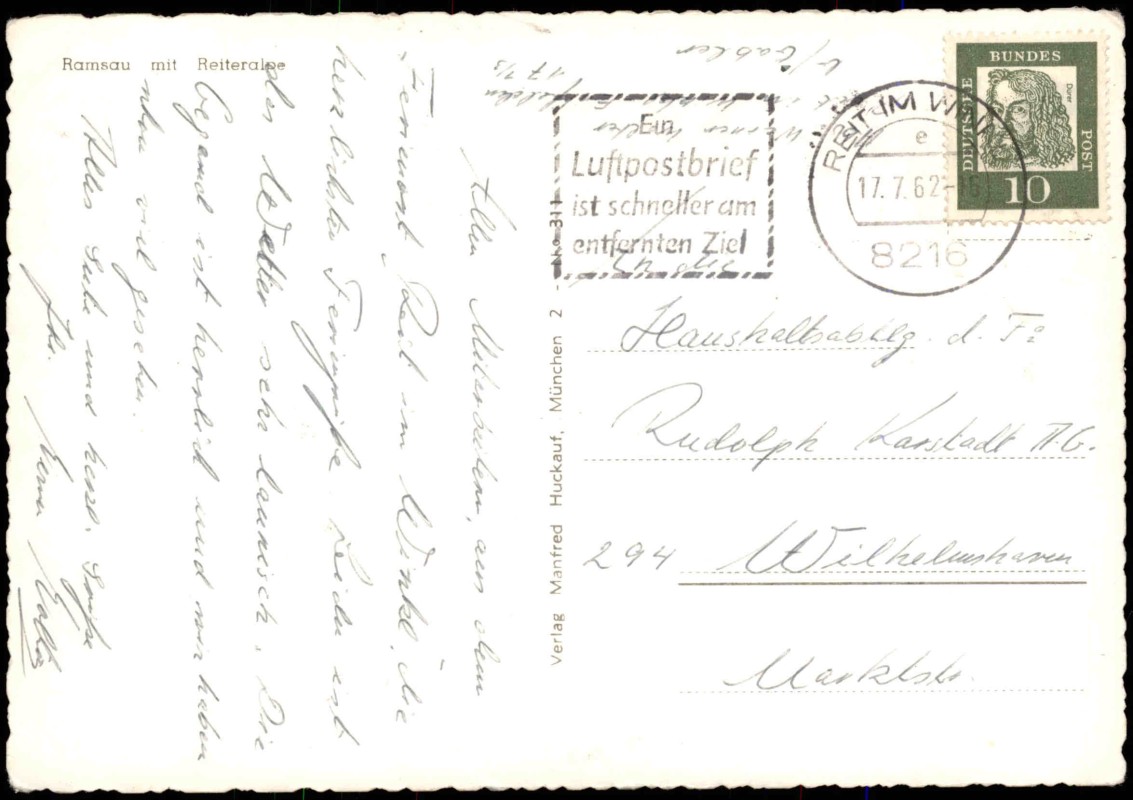 Ramsau mit Reiteralpe
Allen Mitarbeitern, aus dem
Ferienort Reit im Winkl, die
herzlichsten Feriengrüße. Leider ist
das Wetter sehr launisch. Die
Gegend ist herrlich und wir haben
schon viel gesehen.
Alles Gute und herzl. Grüße
Ihr. Werner
Verlag Manfred Huckauf, München 2 - No 311
Ein
Luftpostbrief
ist schneller am
entfernten Ziel
REIT IM WINKL
e
17.7.62-16
8216
DEUTSCHE
BUNDES
POST
Dürer
10
Haushaltsabtlg. d. Fa
Rudolph Karstadt A.G.
294 Wilhelmshaven
Marktstr.